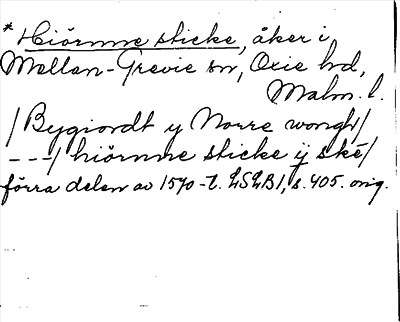 * Hiörnne sticke, åker i
Mellan-Grevie sn, Oxie hd,
Malm. l.
/ Bygiordt y Norre wongh/
---/ hiörnne sticke ij ske/
förra delen av 1570-t. LSLB1, s. 405. orig.